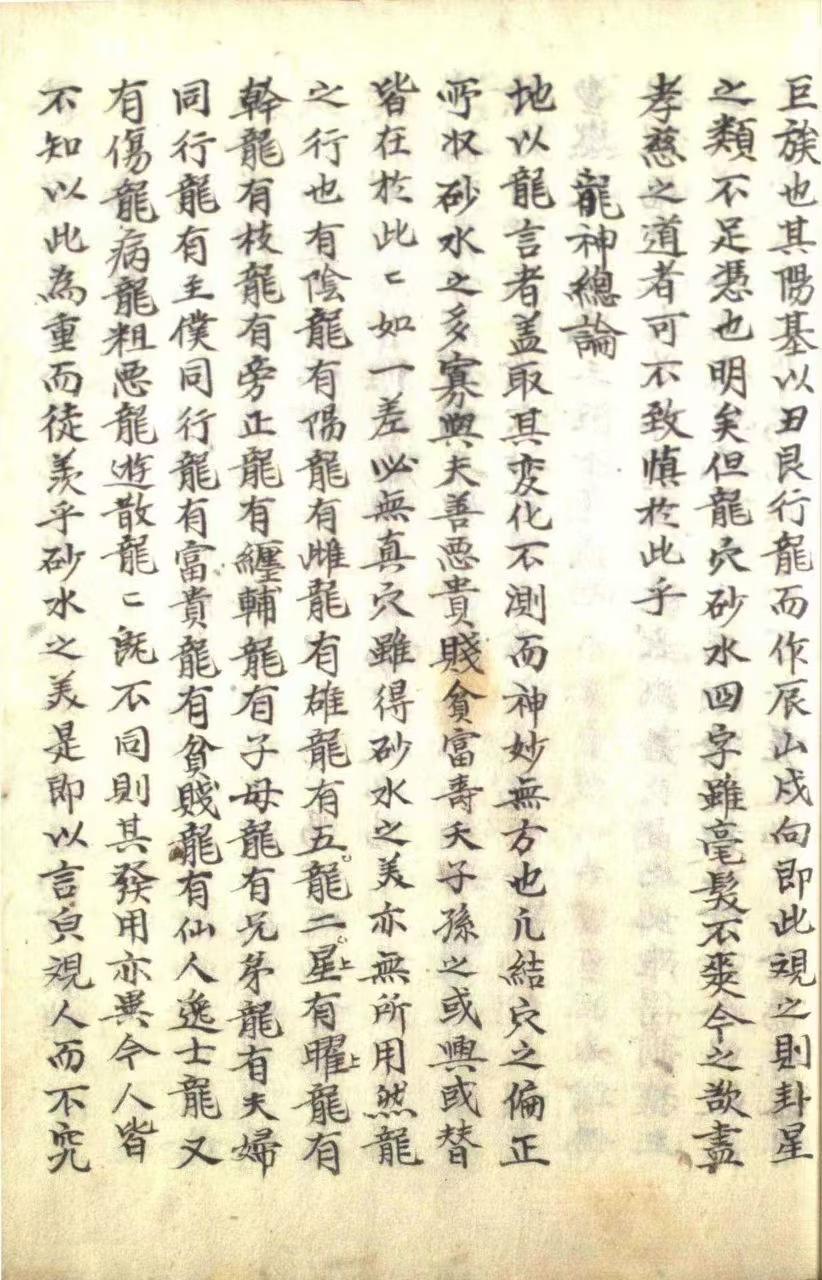 巨族也其陽基以丑艮行龍而作辰山戌向即此視之則卦星
之類不足憑也明矣但龍穴砂水四字雖毫髮不爽今之欲盡
孝慈之道者可不致慎於此乎
龍神總論
地以龍言者盖取其変化不測而神妙無方也凢結穴之偏正
所収砂水之多寡與夫善悪貴賤貧富壽夭子孫之或興或替
皆在於此〻如一差必無真穴雖得砂水之美亦無所用然龍
之行也有陰龍有陽龍有雌龍有雄龍有五龍二星有曜龍有
幹龍有枝龍有旁正龍有纏輔龍有子母龍有兄弟龍有夫婦
同行龍有主僕同行龍有富貴龍有貧賤龍有仙人逸士龍又
有傷龍病龍粗悪龍遊散龍〻既不同則其發用亦異今人皆
不知以此為重而徒羨乎砂水之美是即以言皃視人而不究